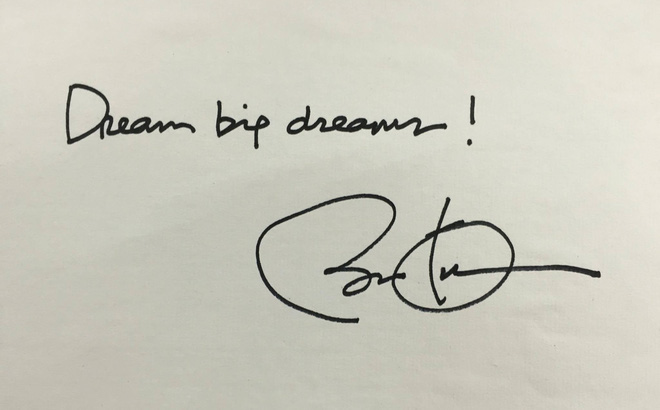 Dream big dreams!